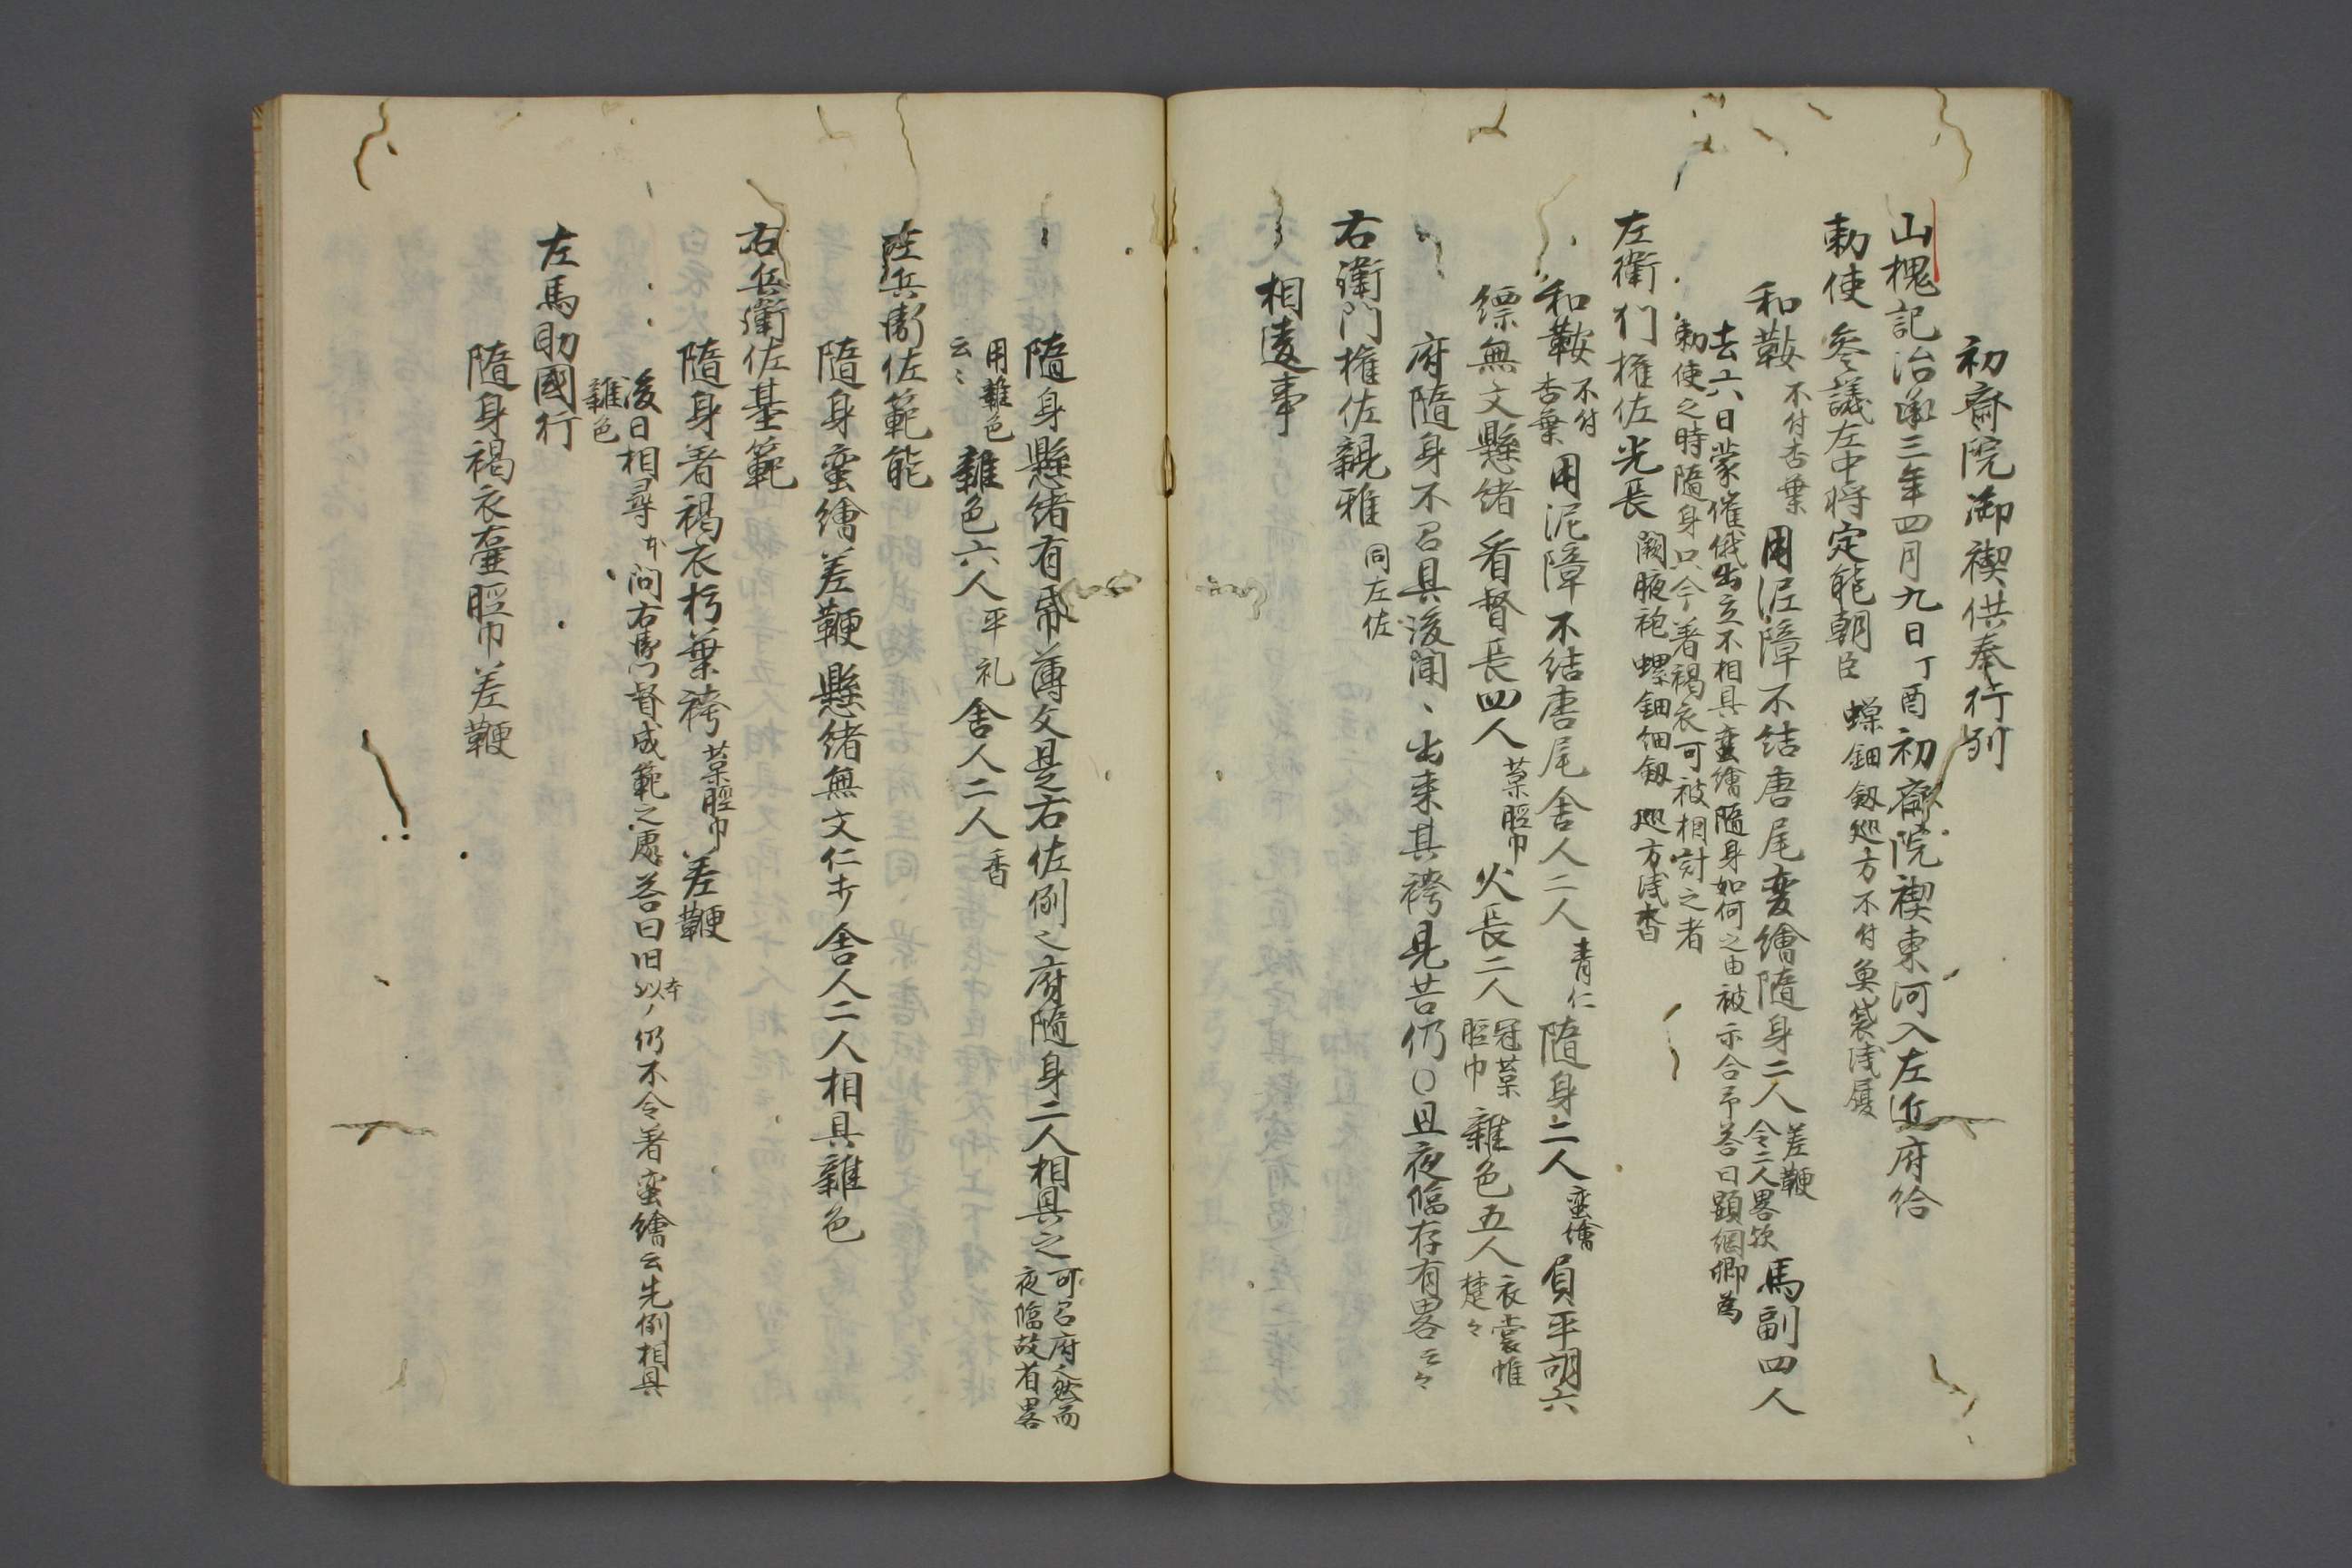 初齋院御禊供奉行列
山槐記治承三年四月九日丁酉初齋院禊東河入左近府給
勅使參議左中将定能朝臣 螺鈿釼巡方不付魚袋浅履
和鞍 不付杏葉 用泥障不結唐尾蛮繪隨身二人 差鞭 令二人畧欤 馬副四人
去六日蒙催俄出立不相具蛮繪隨身如何之由被示合予荅曰顕綱卿為
勅使之時隨身只今著褐衣可被相尋之者
左衛門権佐光長 闕腋袍螺鈿細釼巡方浅沓
和鞍 不付杏葉 用泥障不結唐尾舍人二人 青仁 隨身二人 蛮繪 負平胡六
縹無文懸緒看督長四人 葉脛巾 火長二人 冠葉脛巾 雑色五人 衣裳帷楚々
府隨身不召具後聞、出来其袴見苦仍○且夜陰存有畧云々
右衛門権佐親雅 同左佐
相違事
隨身懸緒有帛薄文是右佐例之府隨身二人相具之 可召府之然而夜陰故省畧
云々 用雑色 雜色六人 平礼 舍人二人 香
左兵衛佐範能
隨身蛮繪差鞭懸緒無文仁ホ舍人二人相具雜色
右兵衛佐基範
隨身著褐衣朽葉袴 葉脛巾 差鞭
後日相尋ホ問右衛門督成範之處荅曰旧以本、仍不令著蛮繪云先例相具
雜色
左馬助國行
隨身褐衣藁脛巾差鞭